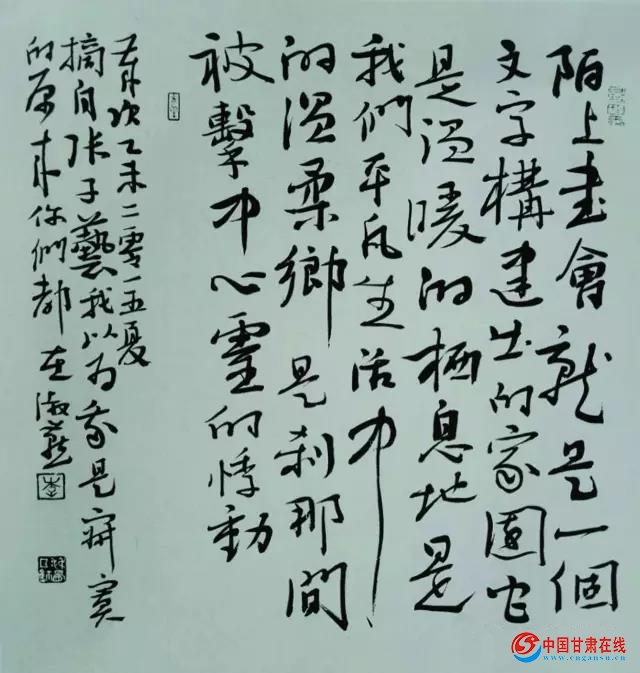 陌上書會就是一個
文字構建出的家園它
是溫暖的栖息地是
我們平凡生活中
的溫柔鄉是刹那間
被擊中心靈的悸動
歲次乙未二零一五夏
摘自張子藝我以为我是寂寞
的原來你們都在淑燕
李
中国甘肃在线
www.cngansu.cn